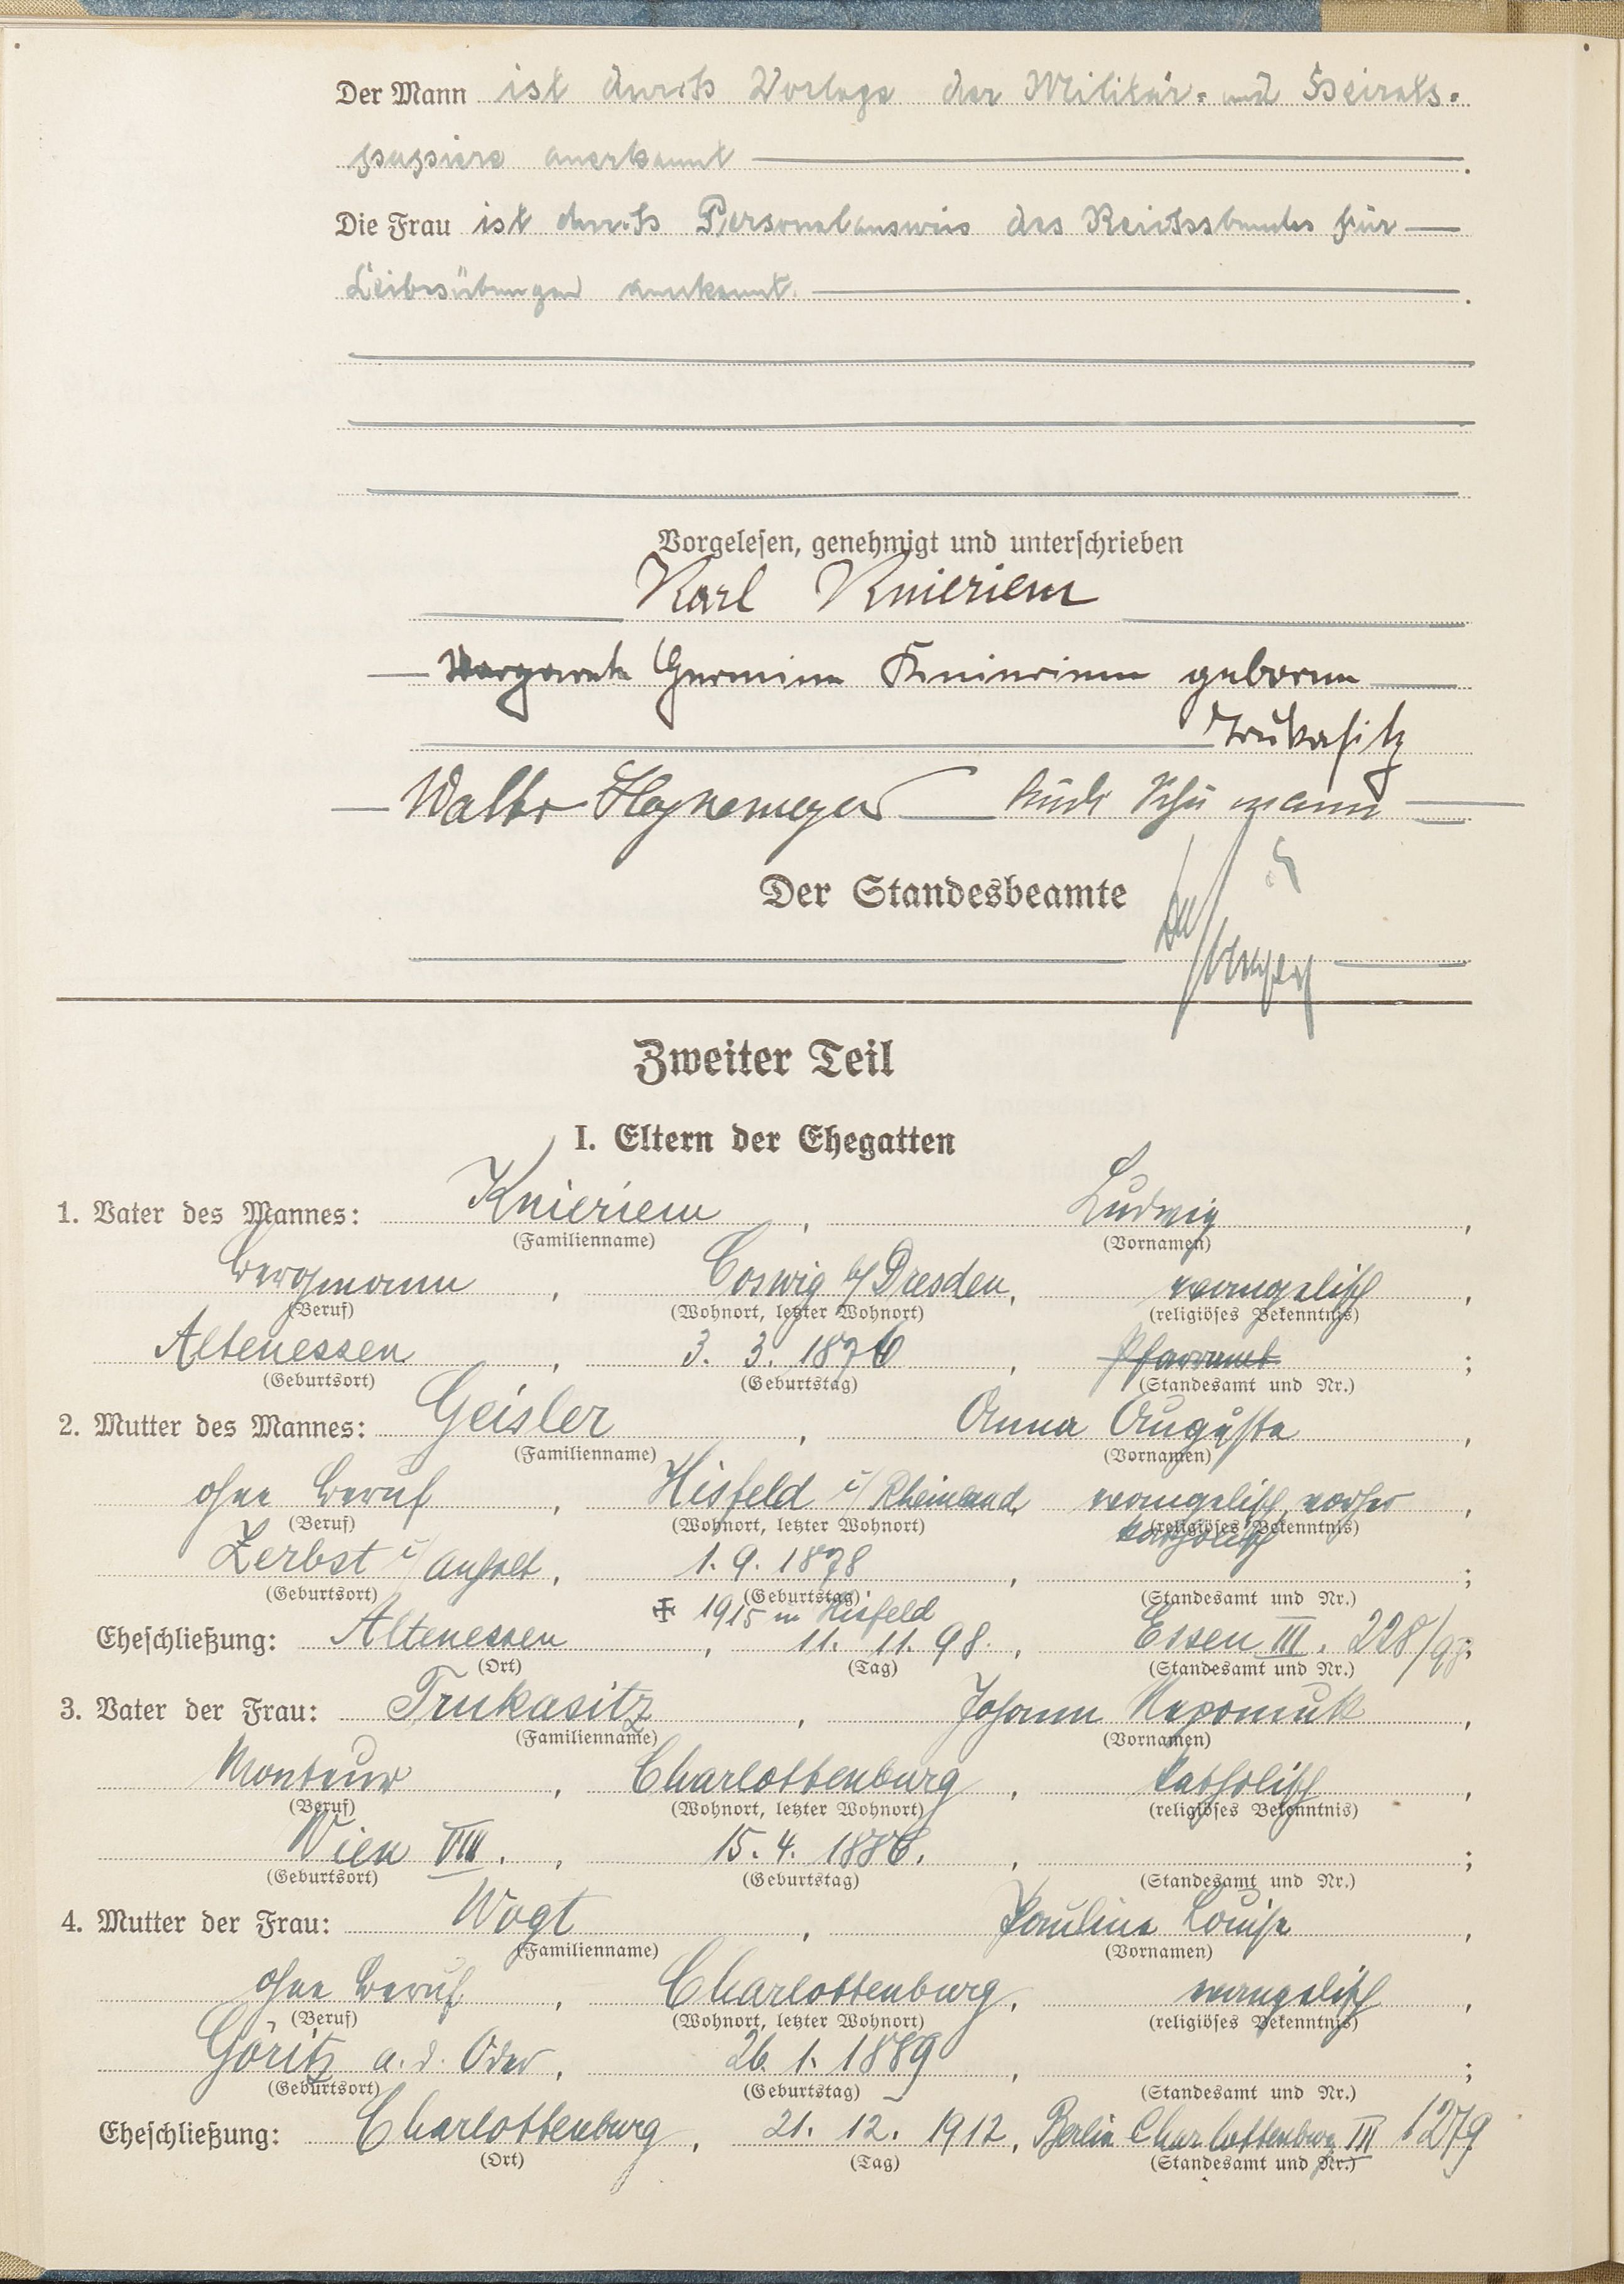 Der Mann ist durch Vorlage der Militär- und Heirats-
papiere anerkannt.
Die Frau ist durch Personalausweis des Reichsbundes für
Leibesübungen anerkannt.
Vorgelesen, genehmigt und unterschrieben
Karl Knieriem
Margarete Hermine Knieriem geborene
Trukasitz
Walter Heynemeyer
Der Standesbeamte
Zweiter Teil
I. Eltern der Ehegatten
1. Vater des Mannes: Knieriem, Ludwig,
(Familienname) (Vornamen)
Bergmann, Coswig b/Dresden, evangelisch,
(Beruf) (Wohnort, letzter Wohnort) (religiöses Bekenntnis)
Altenessen, 3. 3. 1876, Pfarramt;
(Geburtsort) (Geburtstag) (Standesamt und Nr.)
2. Mutter des Mannes: Geisler, Anna Auguste,
(Familienname) (Vornamen)
ohne Beruf, Hisfeld i/Rheinland, evangelisch, vorher,
(Beruf) (Wohnort, letzter Wohnort) (religiöses Bekenntnis)
katholisch
Zerbst i/Anhalt, 1. 9. 1878, ;
(Geburtsort) (Geburtstag) (Standesamt und Nr.)
✠ 1915 in Hisfeld
Eheschließung: Altenessen, 11. 11. 98., Essen III. 228/98;
(Ort) (Tag) (Standesamt und Nr.)
3. Vater der Frau: Trukasitz, Johann Nepomuk,
(Familienname) (Vornamen)
Monteur, Charlottenburg, katholisch,
(Beruf) (Wohnort, letzter Wohnort) (religiöses Bekenntnis)
Wien VIII., 15. 4. 1886., ;
(Geburtsort) (Geburtstag) (Standesamt und Nr.)
4. Mutter der Frau: Wogt, Pauline Louise,
(Familienname) (Vornamen)
ohne Beruf, Charlottenburg, evangelisch,
(Beruf) (Wohnort, letzter Wohnort) (religiöses Bekenntnis)
Göritz a. d. Oder, 26. 1. 1889, ;
(Geburtsort) (Geburtstag) (Standesamt und Nr.)
Eheschließung: Charlottenburg, 21. 12. 1912, Berlin Charlottenburg III 1279
(Ort) (Tag) (Standesamt und Nr.)